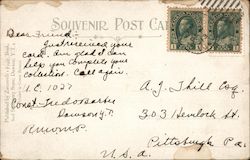 SOUVENIR POST CARD
Dear Friend:-
Just received your
card. Am glad I can
help you complete your
collection. Call again.
I.C. 1027
Const.
Dawson Y.T.
R.N.W.M.P.
A. J. Thill Esq.
303 Hemlock St.
Pittsburgh Pa
U.S.a.